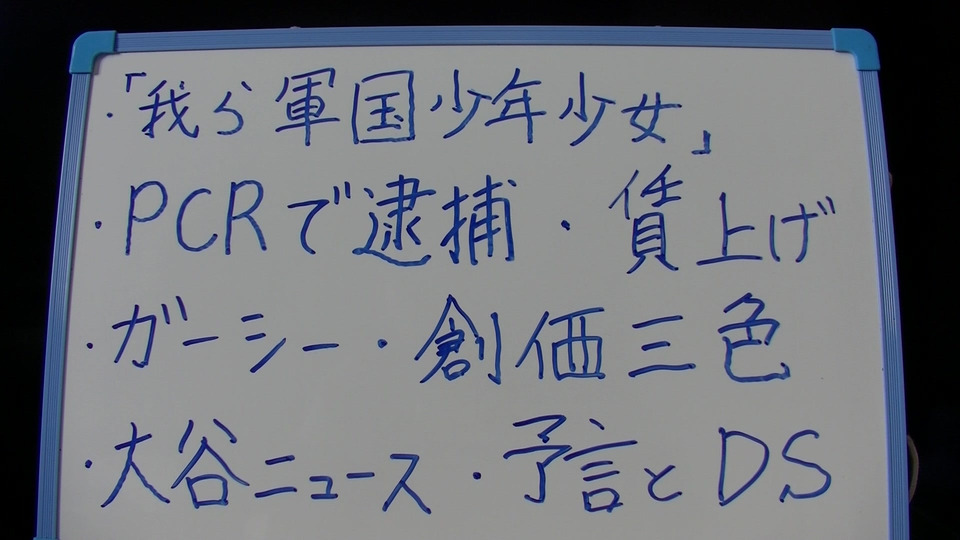 ・「我ら軍国少年少女」
・PCRで逮捕・賃上げ
・ガーシー・創価三色
・大谷ニュース・予言とDS